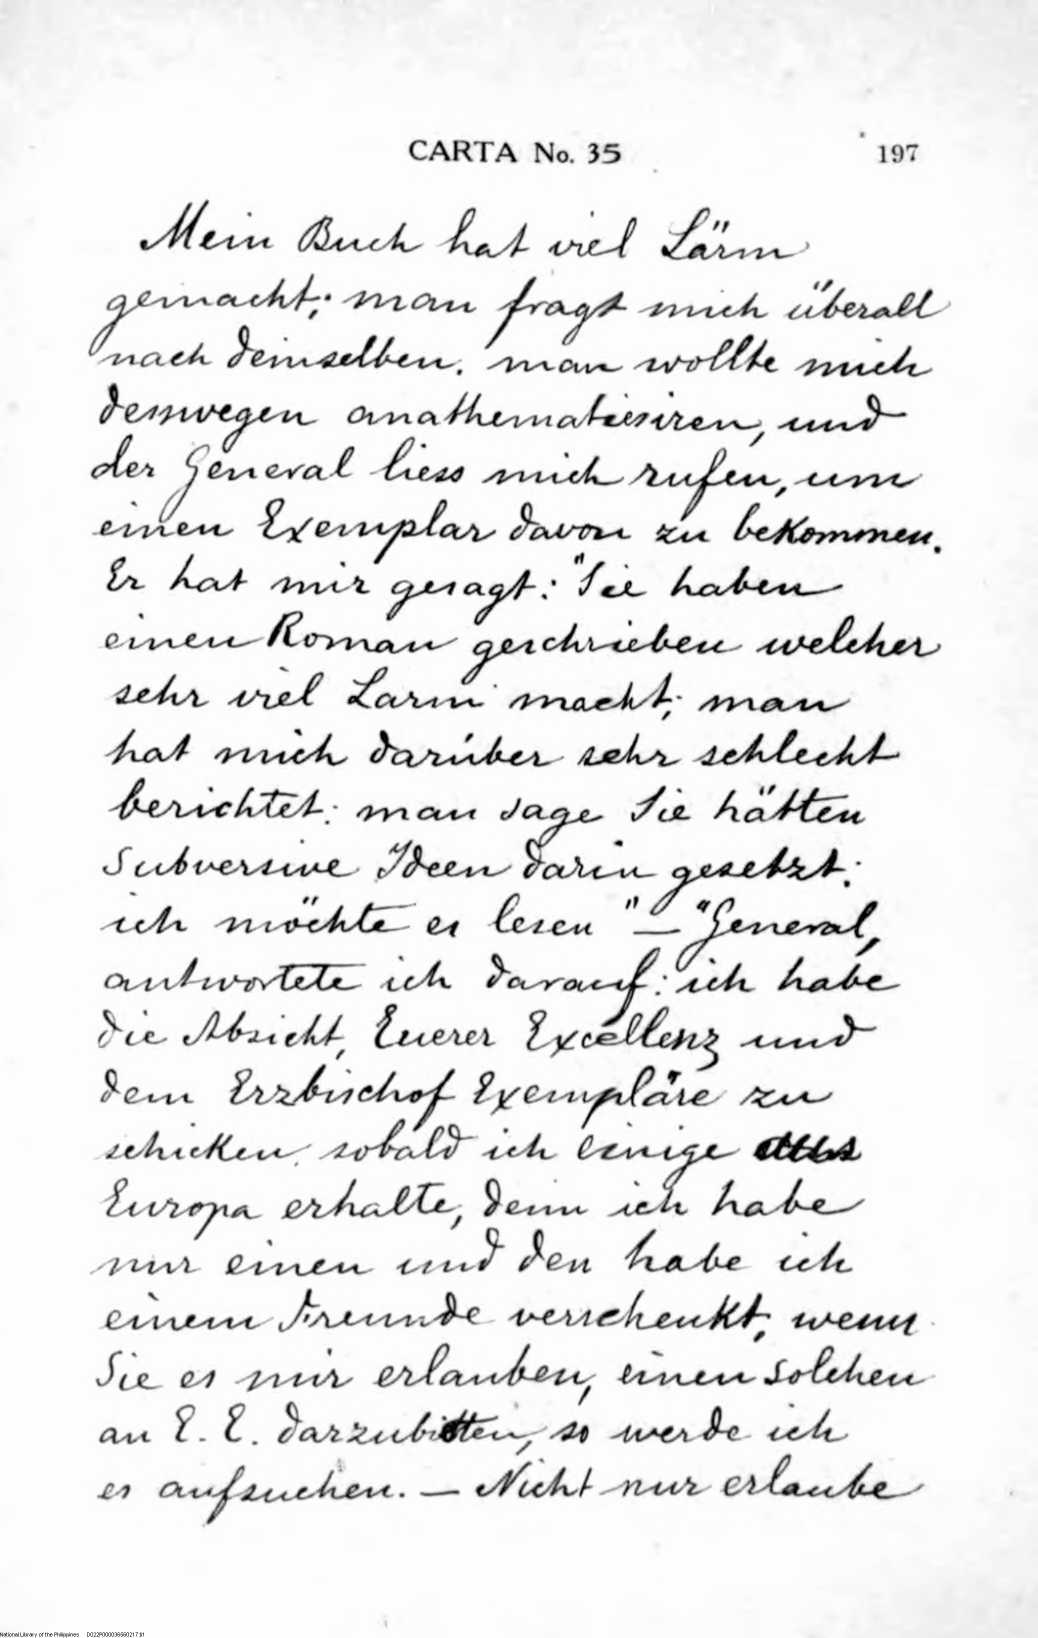 CARTA No. 35 197
Mein Buch hat viel Lärm
gemacht; man fragt mich überall
nach demselben. man wollte mich
desswegen anathematiesiren, und
der General liess mich rufen, um
einen Exemplar davon zu bekommen.
Er hat mir gesagt: "Sie haben
einen Roman geschrieben welcher
sehr viel Larm macht; man
hat mich darüber sehr schlecht
berichtet: man sage Sie hätten
subversive Ideen darin gesetzt:
ich möchte es lesen" — "General,
antwortete ich darauf: ich habe
die Absicht, Euerer Excellenz und
dem Erzbischof Expläre zu
schicken, sobald ich einige aus
Europa erhalte, denn ich habe
nur einen und den habe ich
einem Freunde verschenkt, wenn
Sie es mir erlauben, einen solchen
an E. E. darzubitten, so werde ich
es aufsuchen. — Nicht nur erlaube
National Library of the Philippines